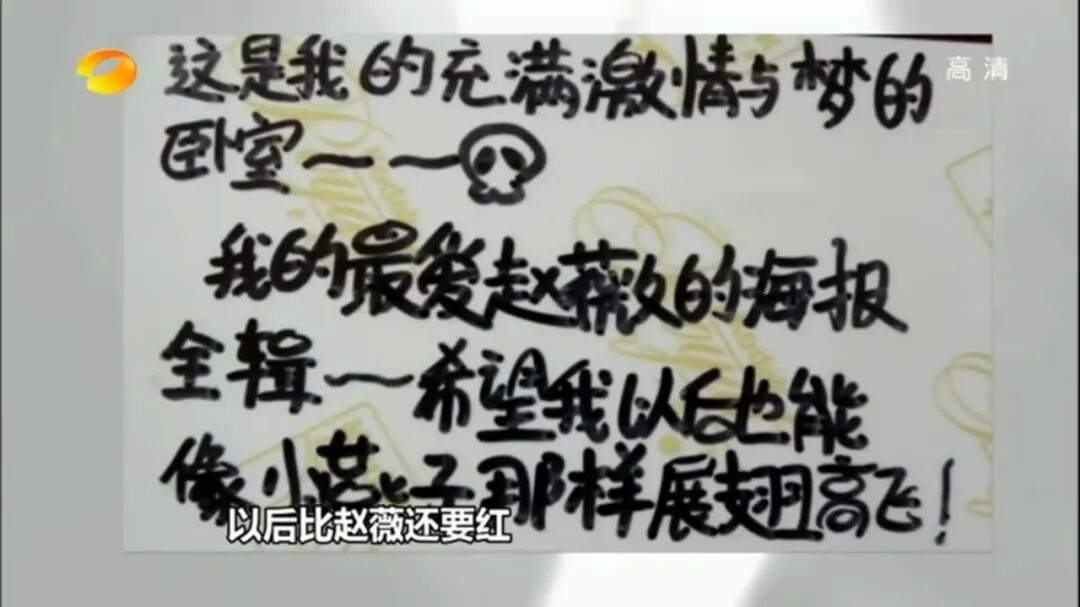 高清
这是我的充满激情与梦的
卧室～～
我的最爱赵薇的海报
全辑～～希望我以后也能
像小燕子那样展翅高飞！
以后比赵薇还要红